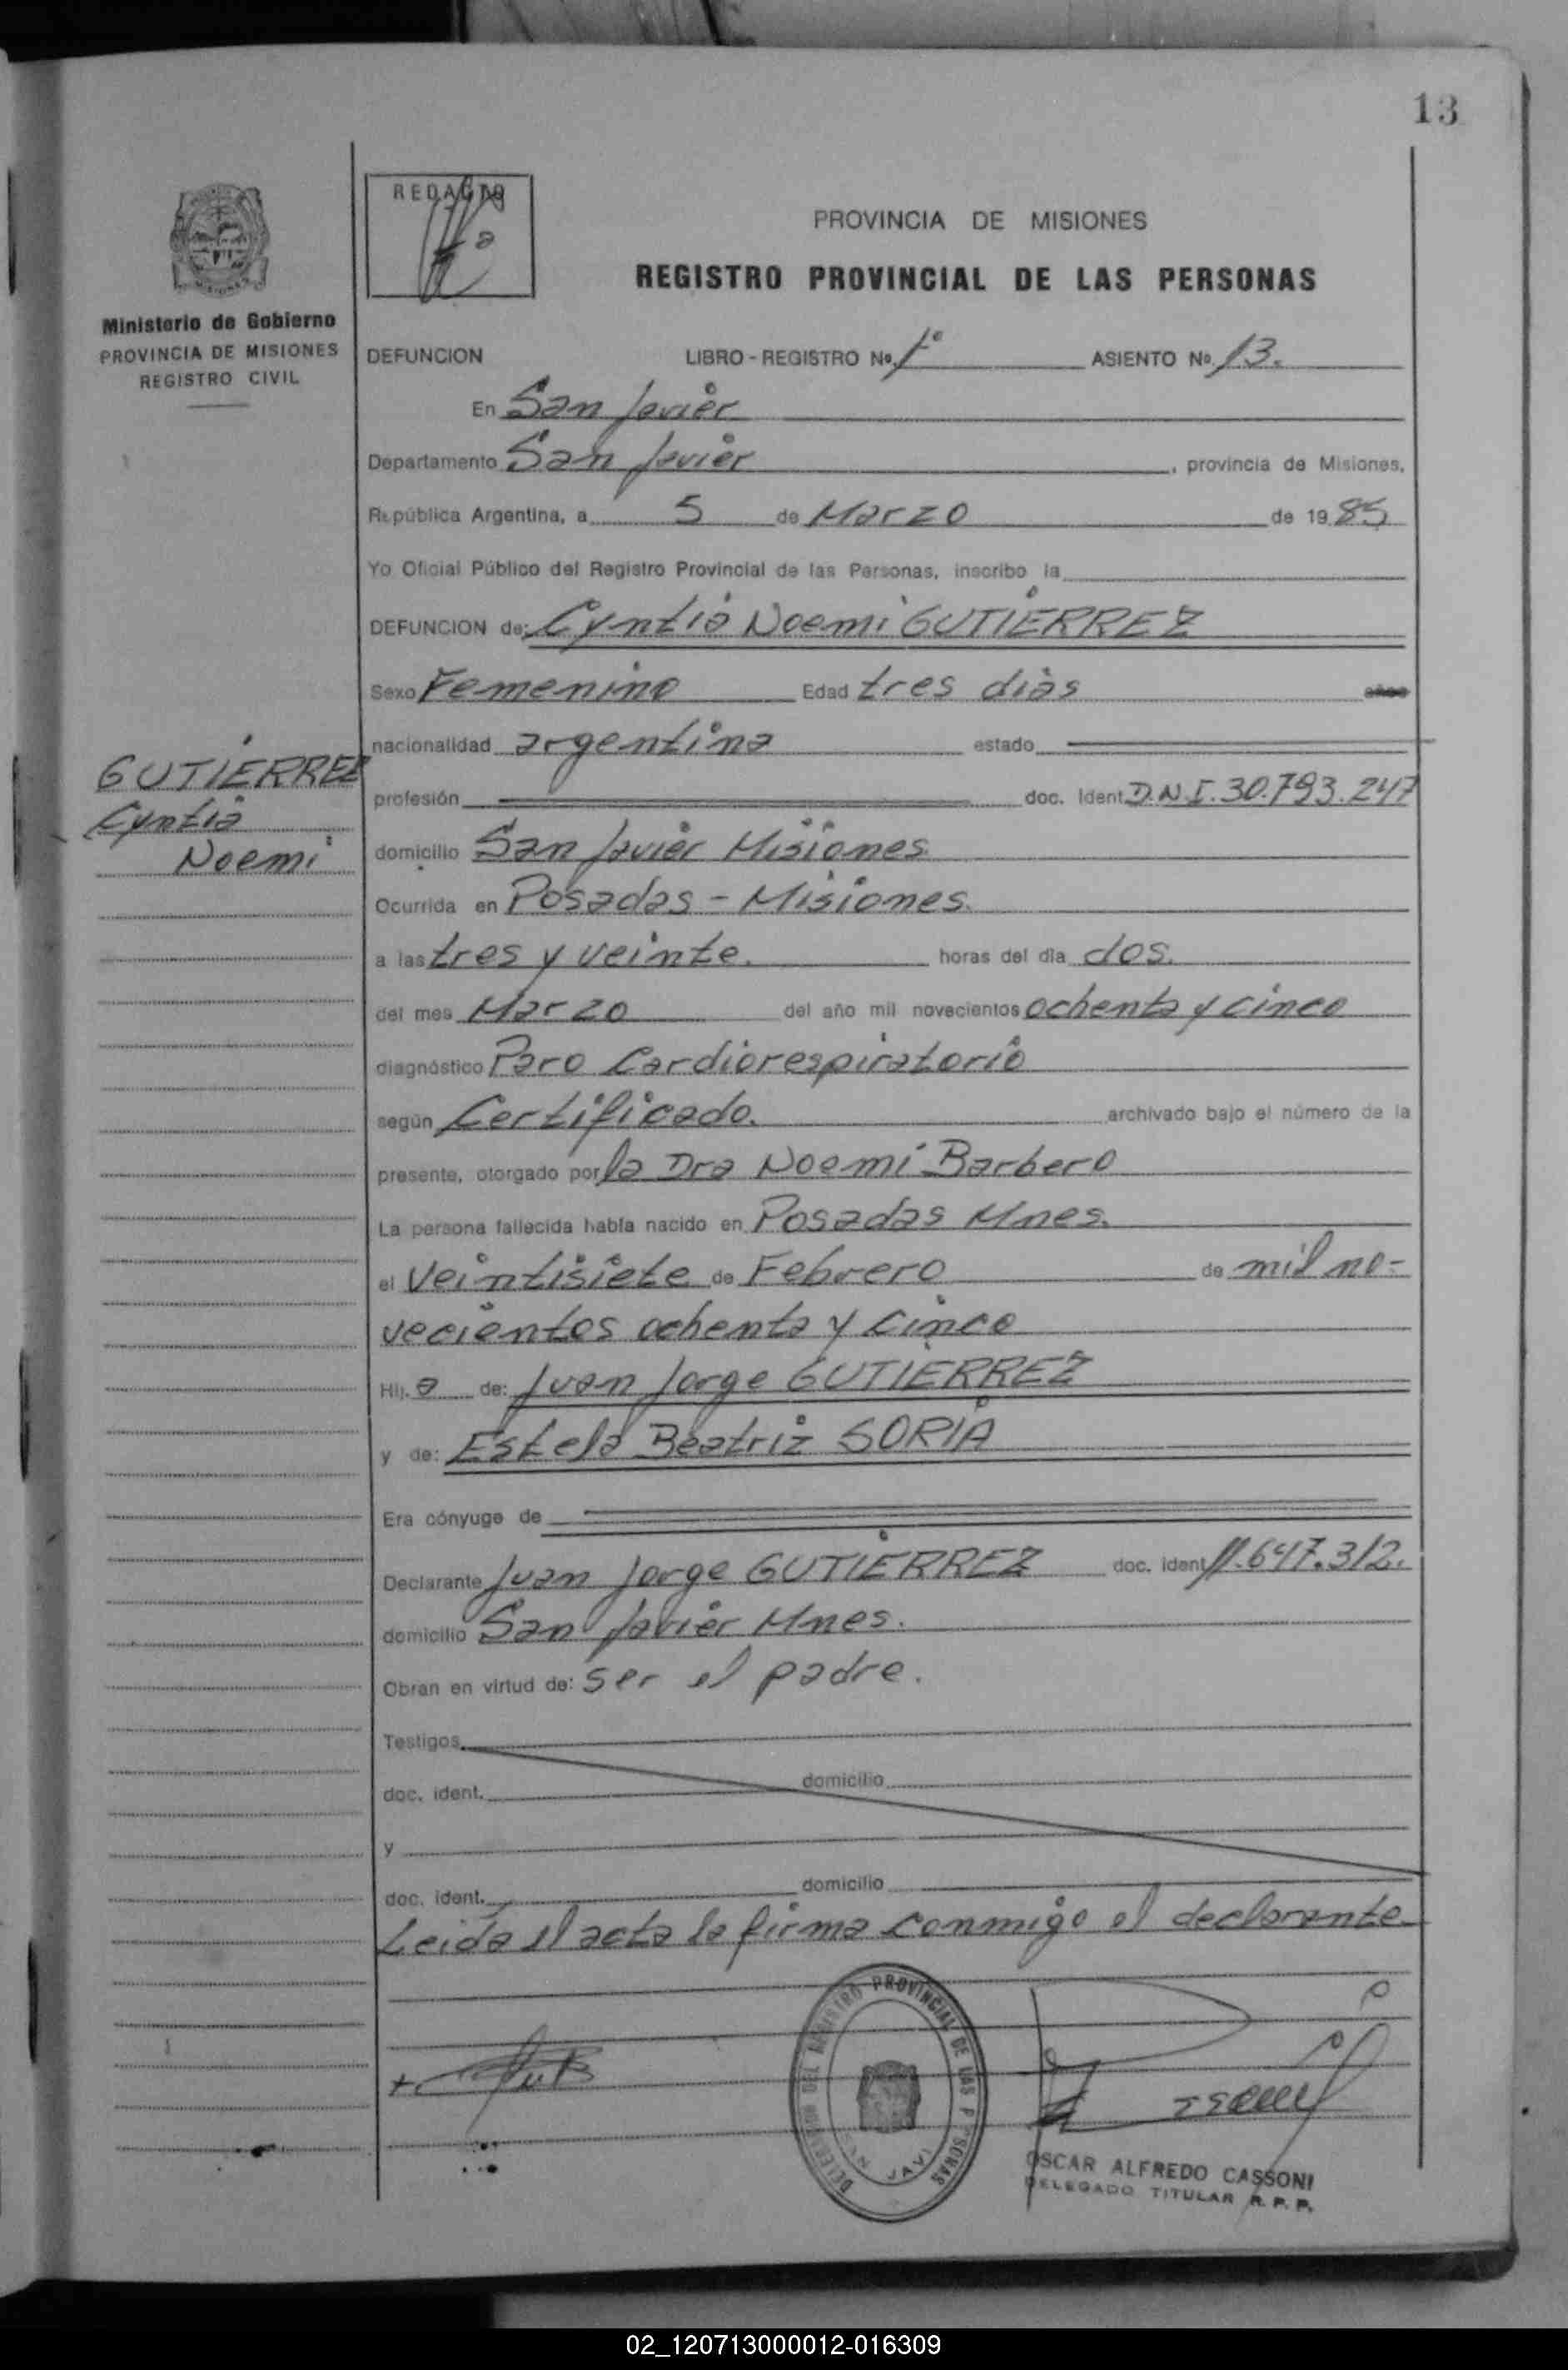 13
REDACTO
PROVINCIA DE MISIONES
REGISTRO PROVINCIAL DE LAS PERSONAS
Ministerio de Gobierno
PROVINCIA DE MISIONES
REGISTRO CIVIL
DEFUNCION LIBRO - REGISTRO No. 1º ASIENTO No. 13.
En San Javier
Departamento San Javier, provincia de Misiones,
República Argentina, a 5 de Marzo de 1985
Yo Oficial Público del Registro Provincial de las Personas, inscribo la
DEFUNCION de: Cyntia Noemi GUTIERREZ
Sexo Femenino Edad tres dias años
nacionalidad argentina estado
GUTIERREZ
Cyntia
Noemi
profesión doc. Ident. D.N.I. 30.793.247
domicilio San Javier Misiones
Ocurrida en Posadas - Misiones.
a las tres y veinte. horas del día dos.
del mes Marzo del año mil novecientos ochenta y cinco
diagnóstico Paro Cardiorespiratorio
según Certificado. archivado bajo el número de la
presente, otorgado por la Dra Noemi Barbero
La persona fallecida había nacido en Posadas Mnes.
el Veintisiete de Febrero de mil no-
vecientos ochenta y cinco
Hij. a de: Juan Jorge GUTIERREZ
y de: Estela Beatriz SORIA
Era cónyuge de
Declarante Juan Jorge GUTIERREZ doc. ident. 11.647.312.
domicilio San Javier Mnes.
Obran en virtud de: ser el padre.
Testigos
doc. ident. domicilio
y
doc. ident. domicilio
Leida el acta la firma conmigo el declarante
REGISTRO PROVINCIAL DE LAS PERSONAS
OSCAR ALFREDO CASSONI
DELEGADO TITULAR R. P. P.
02_120713000012-016309